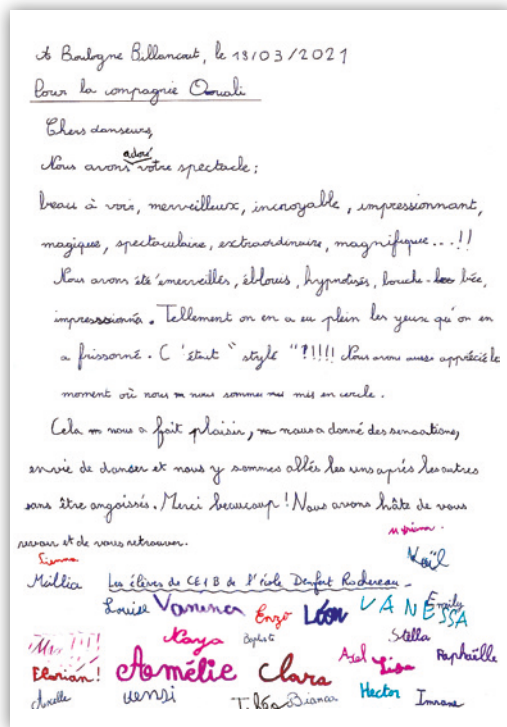 A Boulogne Billancout, le 18/03/2021
Pour la compagnie Ooouali
Chers danseurs,
Nous avons adoré votre spectacle;
beau à voir, merveilleux, incroyable, impressionnant,
magique, spectaculaire, extraordinaire, magnifique...!!
Nous avons été émerveillés, éblouis, hypnotisés, bouche-bée,
impressionnés. Tellement on en a eu plein les yeux qu'on en
a frissonné. C'était "stylé"?!!!! Nous avons aussi apprécié le
moment où nous nous sommes mis en cercle.
Cela nous a fait plaisir, nous a donné des sensations,
envie de danser et nous y sommes allés les uns après les autres
sans être angoissés. Merci beaucoup! Nous avons hâte de vous
revoir et de vous retrouver.
Sienna
Kaïl
Meïllia Les élèves de CE1B de l'école Denfert Rochereau
Louise Vanina Enzo Léon VANESSA Emily
Naya Baptiste Stella
Florian! Amélie Clara Azel Lisa Raphaëlle
Axelle Wensi Bianca Hector Imrane